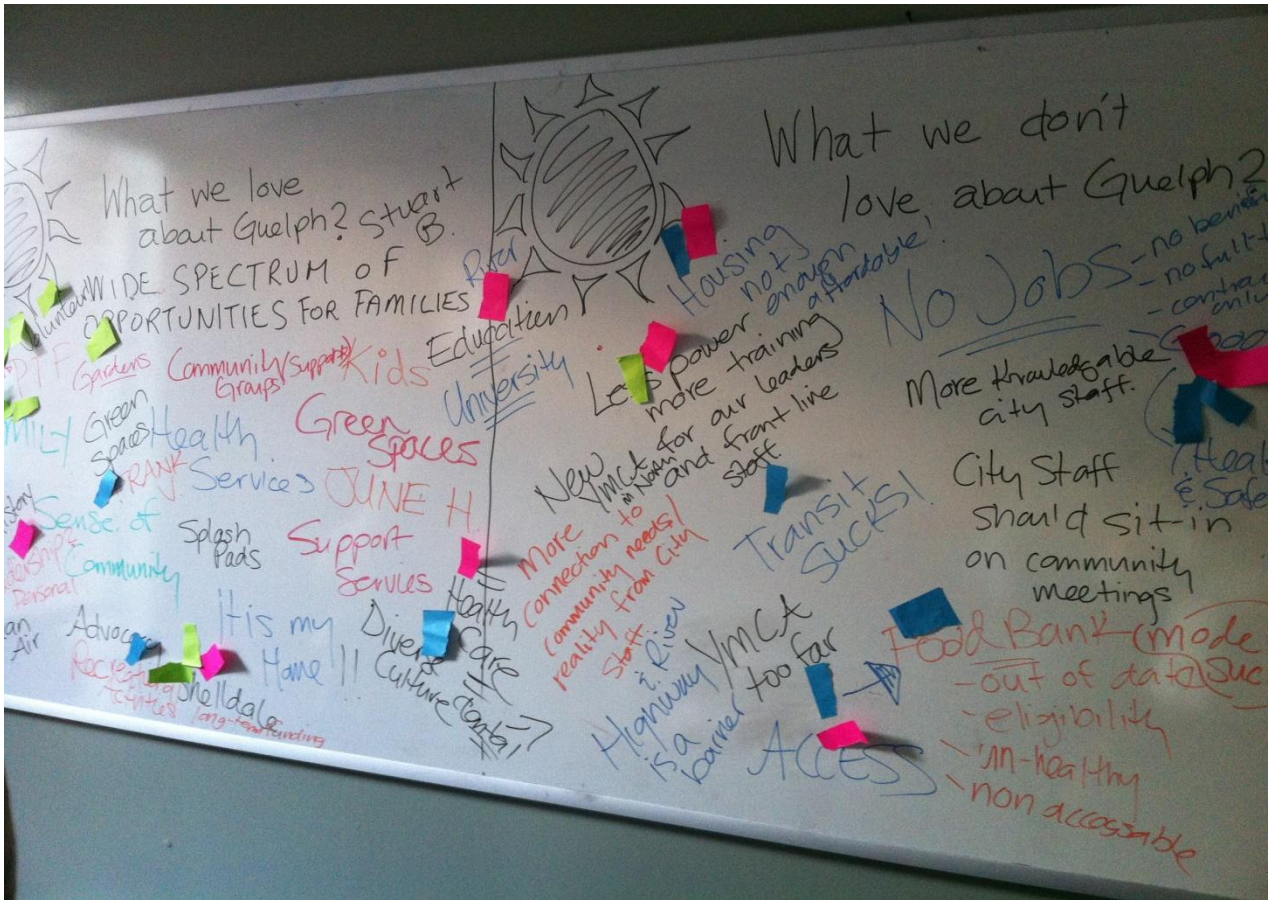 What we love
about Guelph?
Stuart
B.
WIDE SPECTRUM OF
OPPORTUNITIES FOR FAMILIES
Gardens
Community/Support
Groups
Kids
Green
Spaces
Health
Services
Green
Spaces
FRANK
JUNE H.
Sense of
Community
Splash
Pads
Support
Servies
Personal
Air
it is my
Home !!
Diverse
Culture
Shelldale
long-term funding
River
Education
University
Health
Care
dental
What we don't
love, about Guelph?
Housing
not
enough
affordable!
power
more training
for our leaders
and front line
staff
New
YMCA
in North
More
connection to
community needs/
reality from City
Staff
Transit
SUCKS!
Highway
& River
is a
barrier
YMCA
too far
ACCESS
No Jobs
- no
-
-
More Knowledgable
city staff.
City Staff
should sit-in
on community
meetings
& Safe
Food Bank
- out of date
- eligibility
- un-healthy
- non accossable